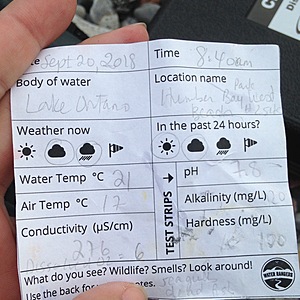 te Sept 20, 2018 Time 8:40am
Body of water Location name Park
Lake Ontario Humber Bay West
Beach
Weather now In the past 24 hours?
Water Temp °C 21 pH 7.8
Air Temp °C 17 Alkalinity (mg/L)
Conductivity (µS/cm) Hardness (mg/L)
276
= 6
TEST STRIPS
What do you see? Wildlife? Smells? Look around!
Use the back for notes.
WATER RANGERS